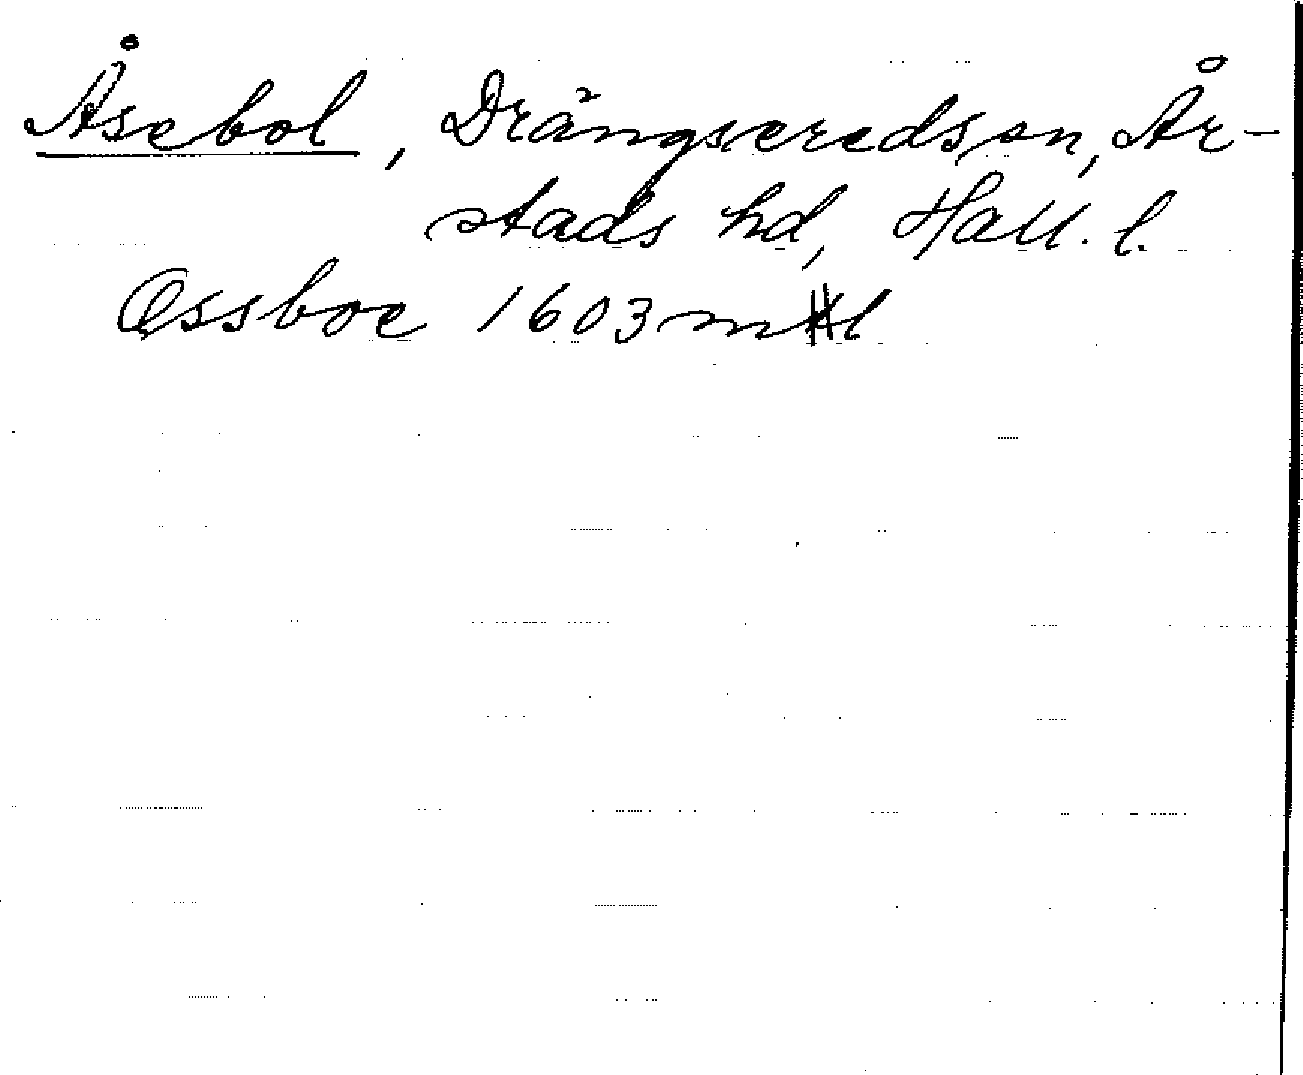 Åsebol, Drängseredssn, År-
stads hd, Hall. l.
Ossboe 1603